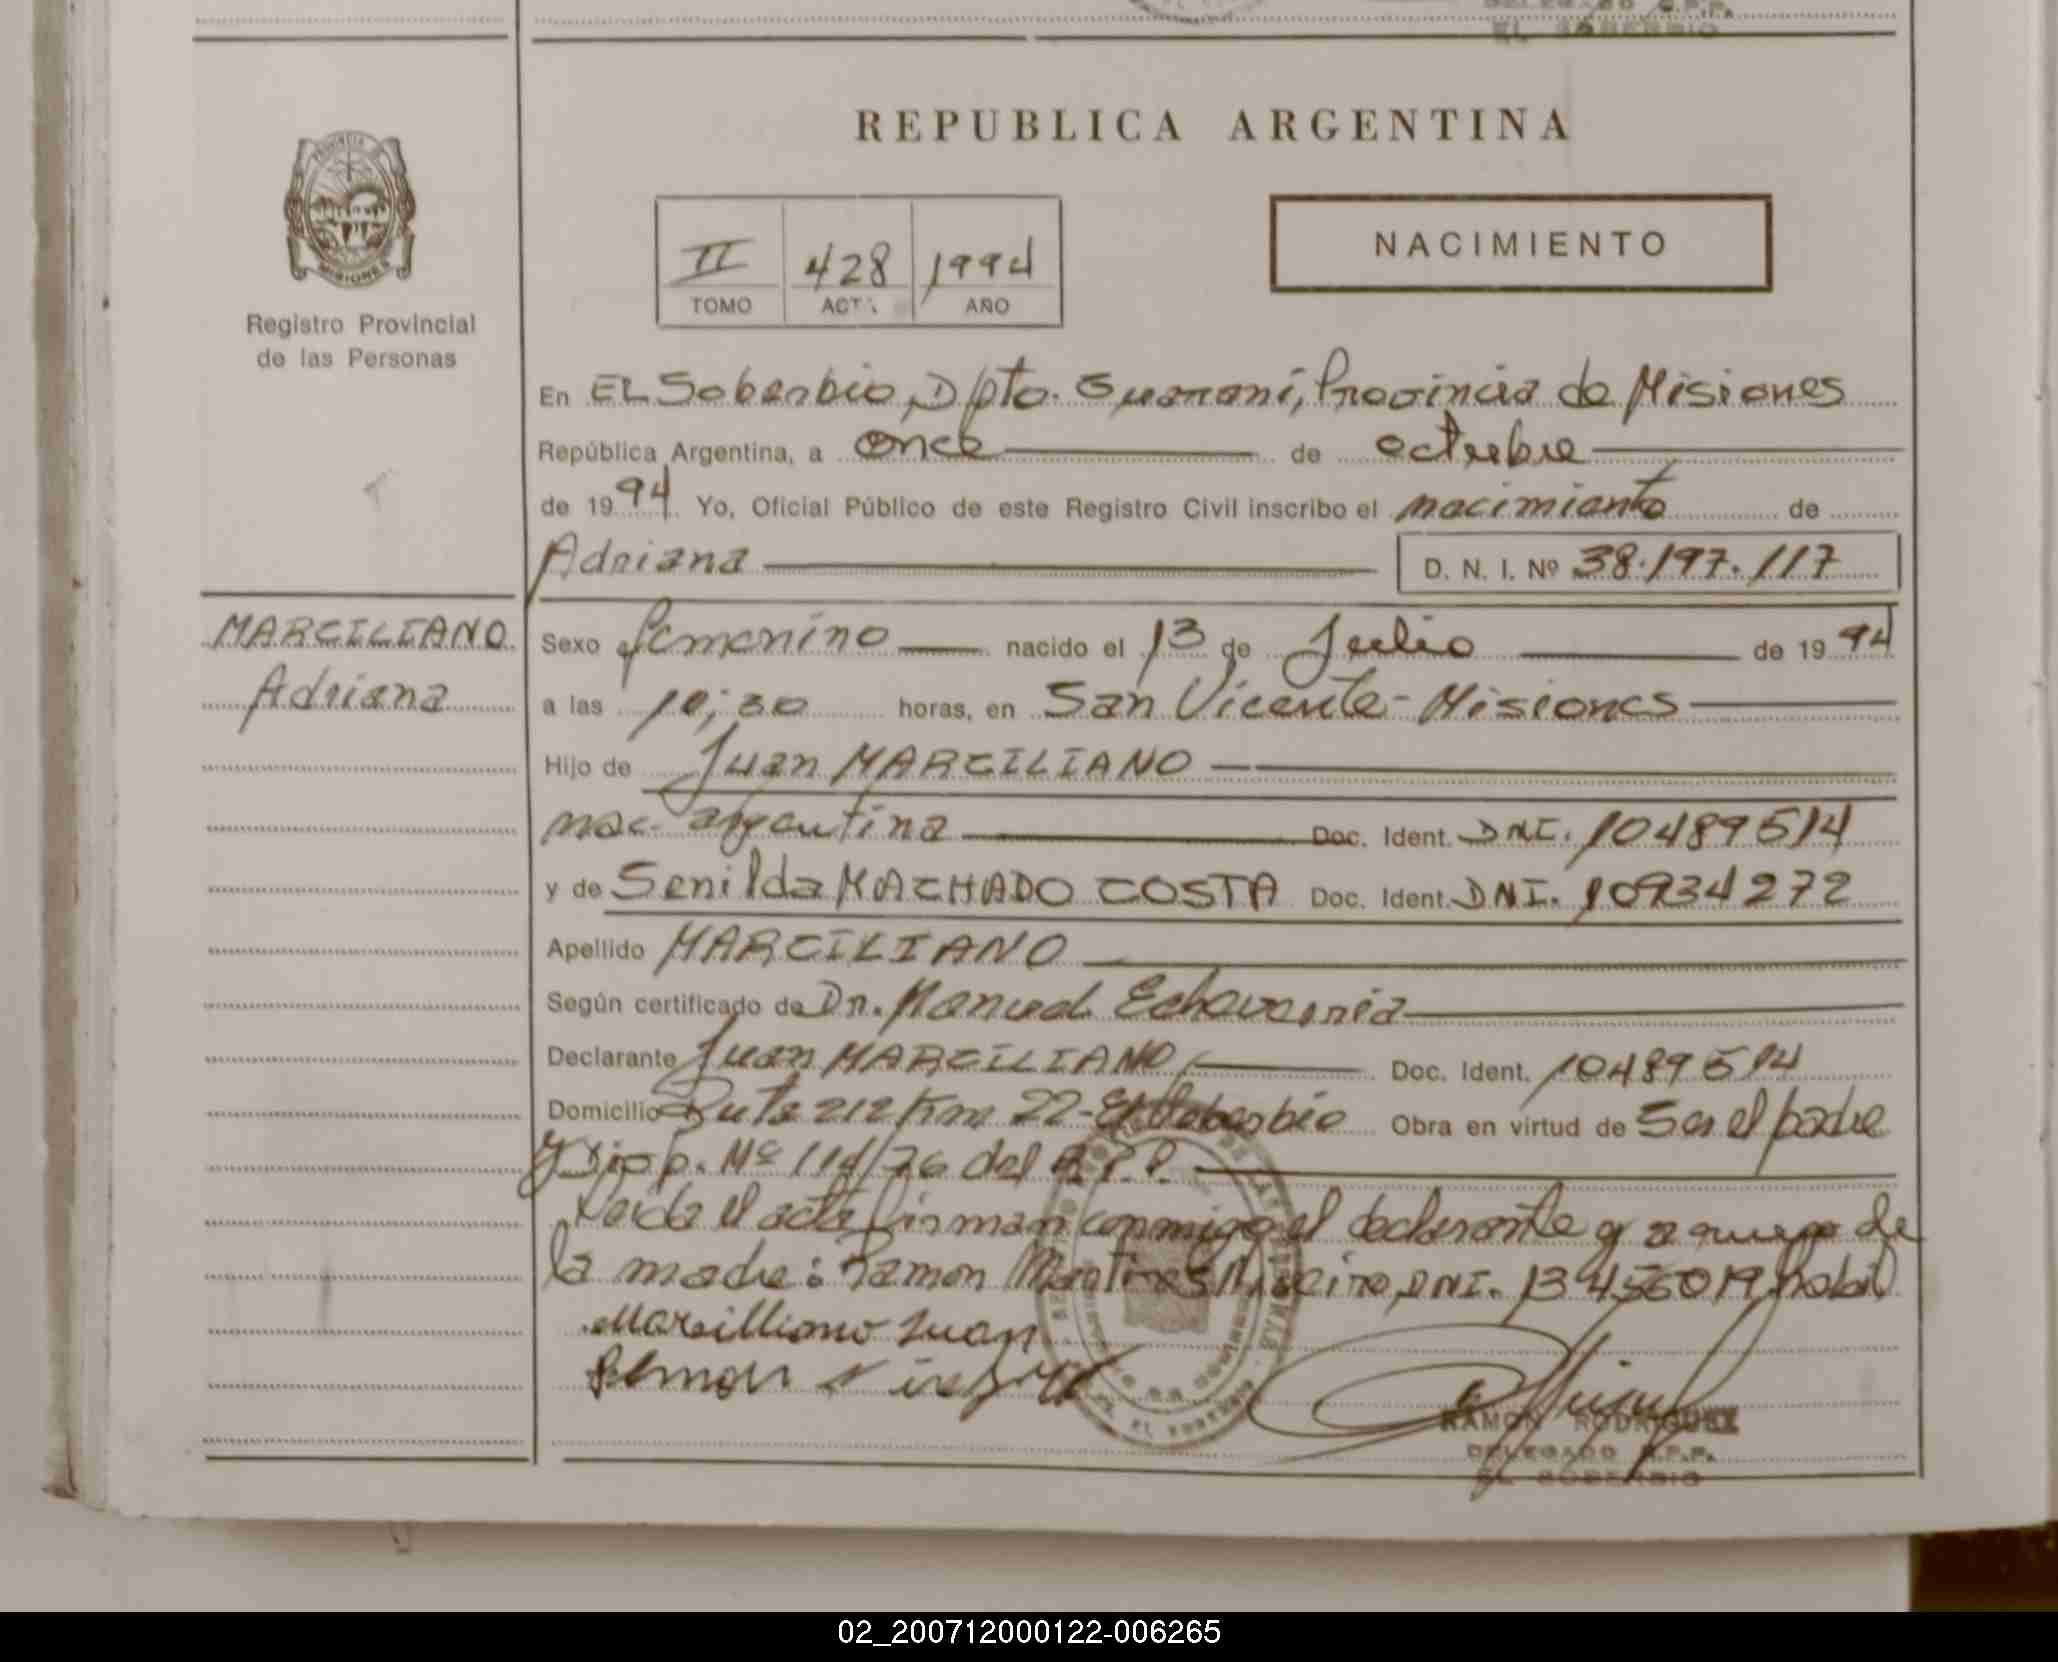 EL SOBERBIO
REPUBLICA ARGENTINA
PROVINCIA DE
MISIONES
Registro Provincial
de las Personas
II 428 1994
TOMO ACTA AÑO
NACIMIENTO
En El Soberbio, Dpto. Guaraní, Provincia de Misiones
República Argentina, a once de octubre
de 1994 Yo, Oficial Público de este Registro Civil inscribo el nacimiento de
Adriana D. N. I. Nº 38.197.117
MARCILIANO
Adriana
Sexo femenino nacido el 13 de Julio de 1994
a las 10;30 horas, en San Vicente - Misiones
Hijo de Juan MARCILIANO
nac. argentina Doc. Ident. DNI. 10489514
y de Senilda MACHADO COSTA Doc. Ident. DNI. 10934272
Apellido MARCILIANO
Según certificado de Dr. Manuel Echaverria
Declarante Juan MARCILIANO Doc. Ident. 10489514
Domicilio Ruta 212 Km 22 - El Soberbio Obra en virtud de Ser el padre
y Disp. Nº 114/76 del R.P.P.
Leida el acta firman conmigo el declarante y a ruego de
la madre: Ramon DNI. 13456019 habil
Marcilliano Juan
Ramon
RAMON RODRIGUEZ
DELEGADO R.P.P.
EL SOBERBIO
02_200712000122-006265